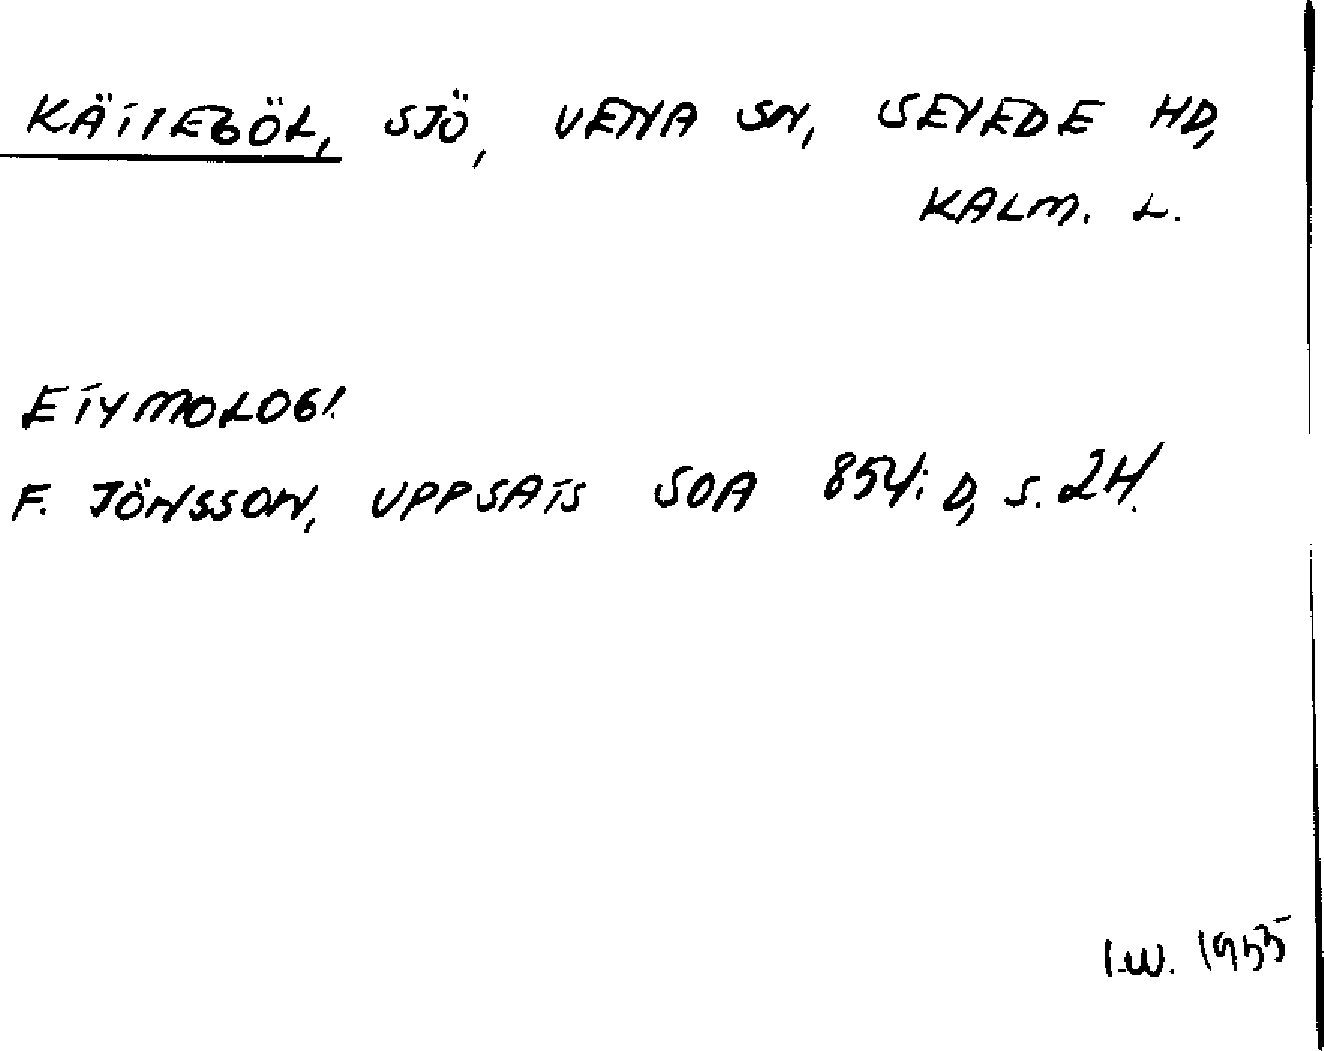 KÄTTEGÖL, SJÖ, VENA SN, SEVEDE HD,
KALM. L.
ETYMOLOGI.
F. JÖNSSON, UPPSATS SOA 854:D, S. 24.
I.W. 1955